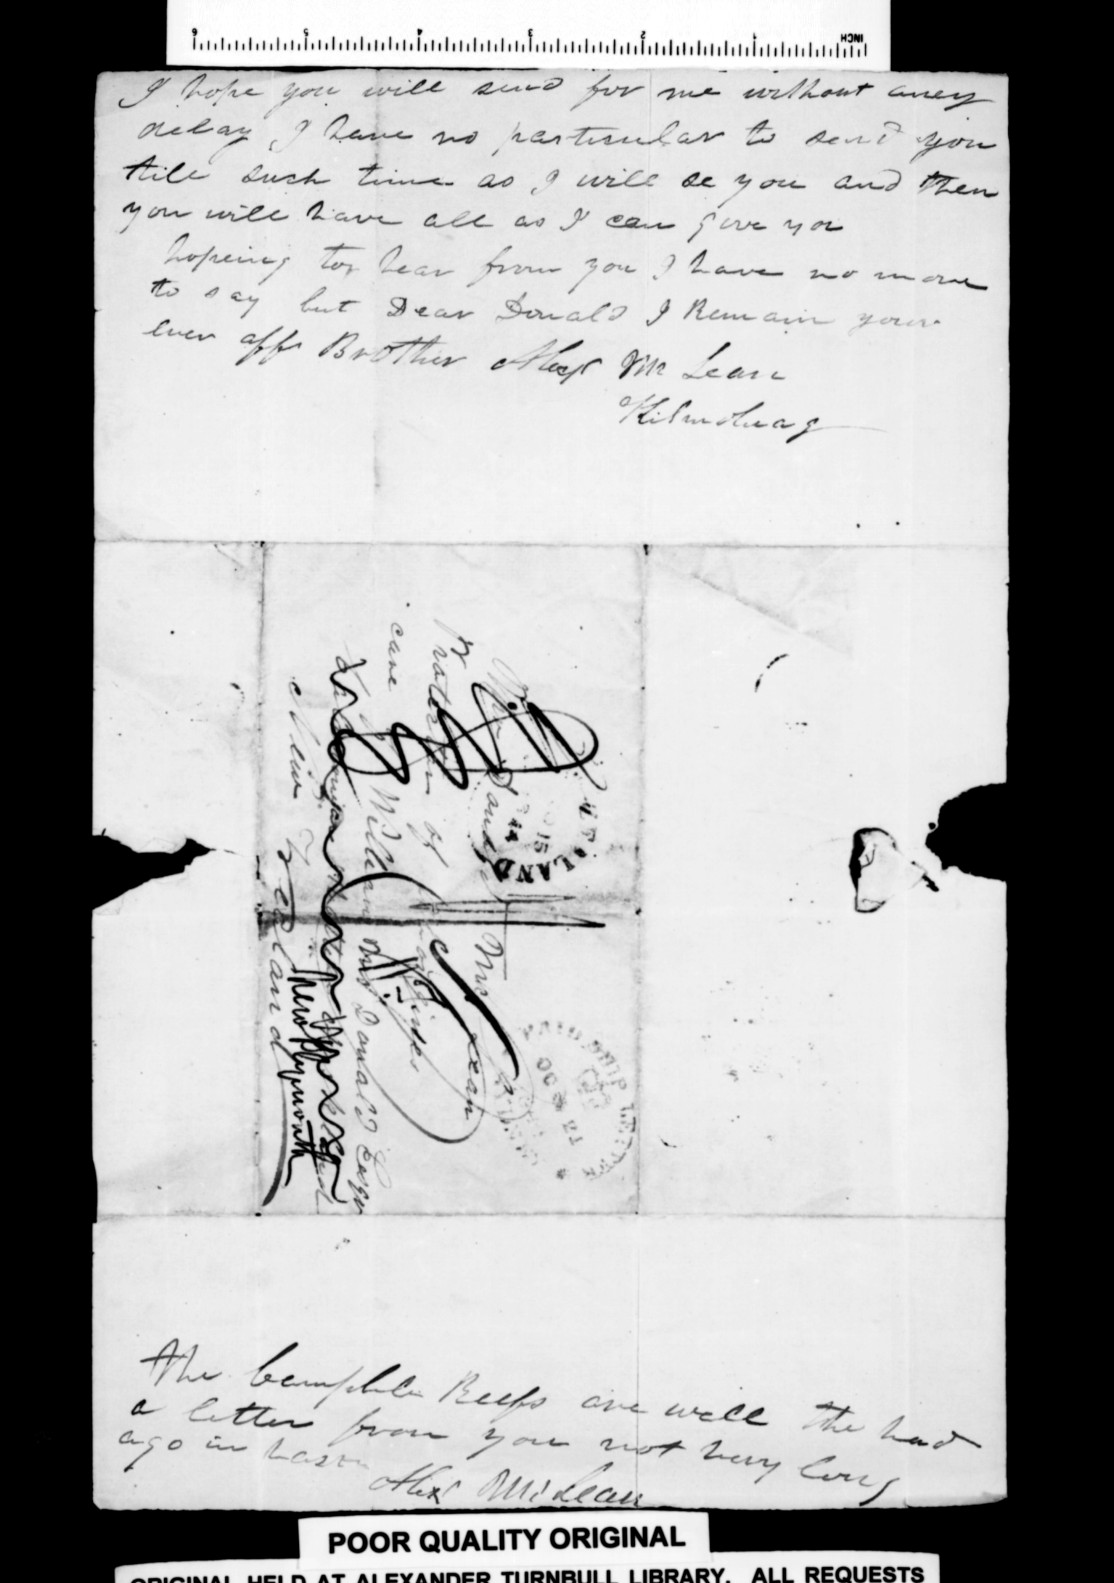 I hope you will send for me without aney
delay, I have no particular to send you
till such time as I will se you and then
you will have all as I can give you
hopeing to hear from you I have no more
to say but Dear Donald I Remain your
ever aff Brother Alexr Mc Lean
Kilmoluag
Mr Donald Mc Lean
Protector of
care of William Donald Esqr
New Zealand
New Plymouth
PAID SHIP LETTER
OC 21
The Campbells are well the had
a letter from you not very long
ago in haste
Alexr McLean
INCH
1 2 3 4 5 6
POOR QUALITY ORIGINAL
ORIGINAL HELD AT ALEXANDER TURNBULL LIBRARY. ALL REQUESTS